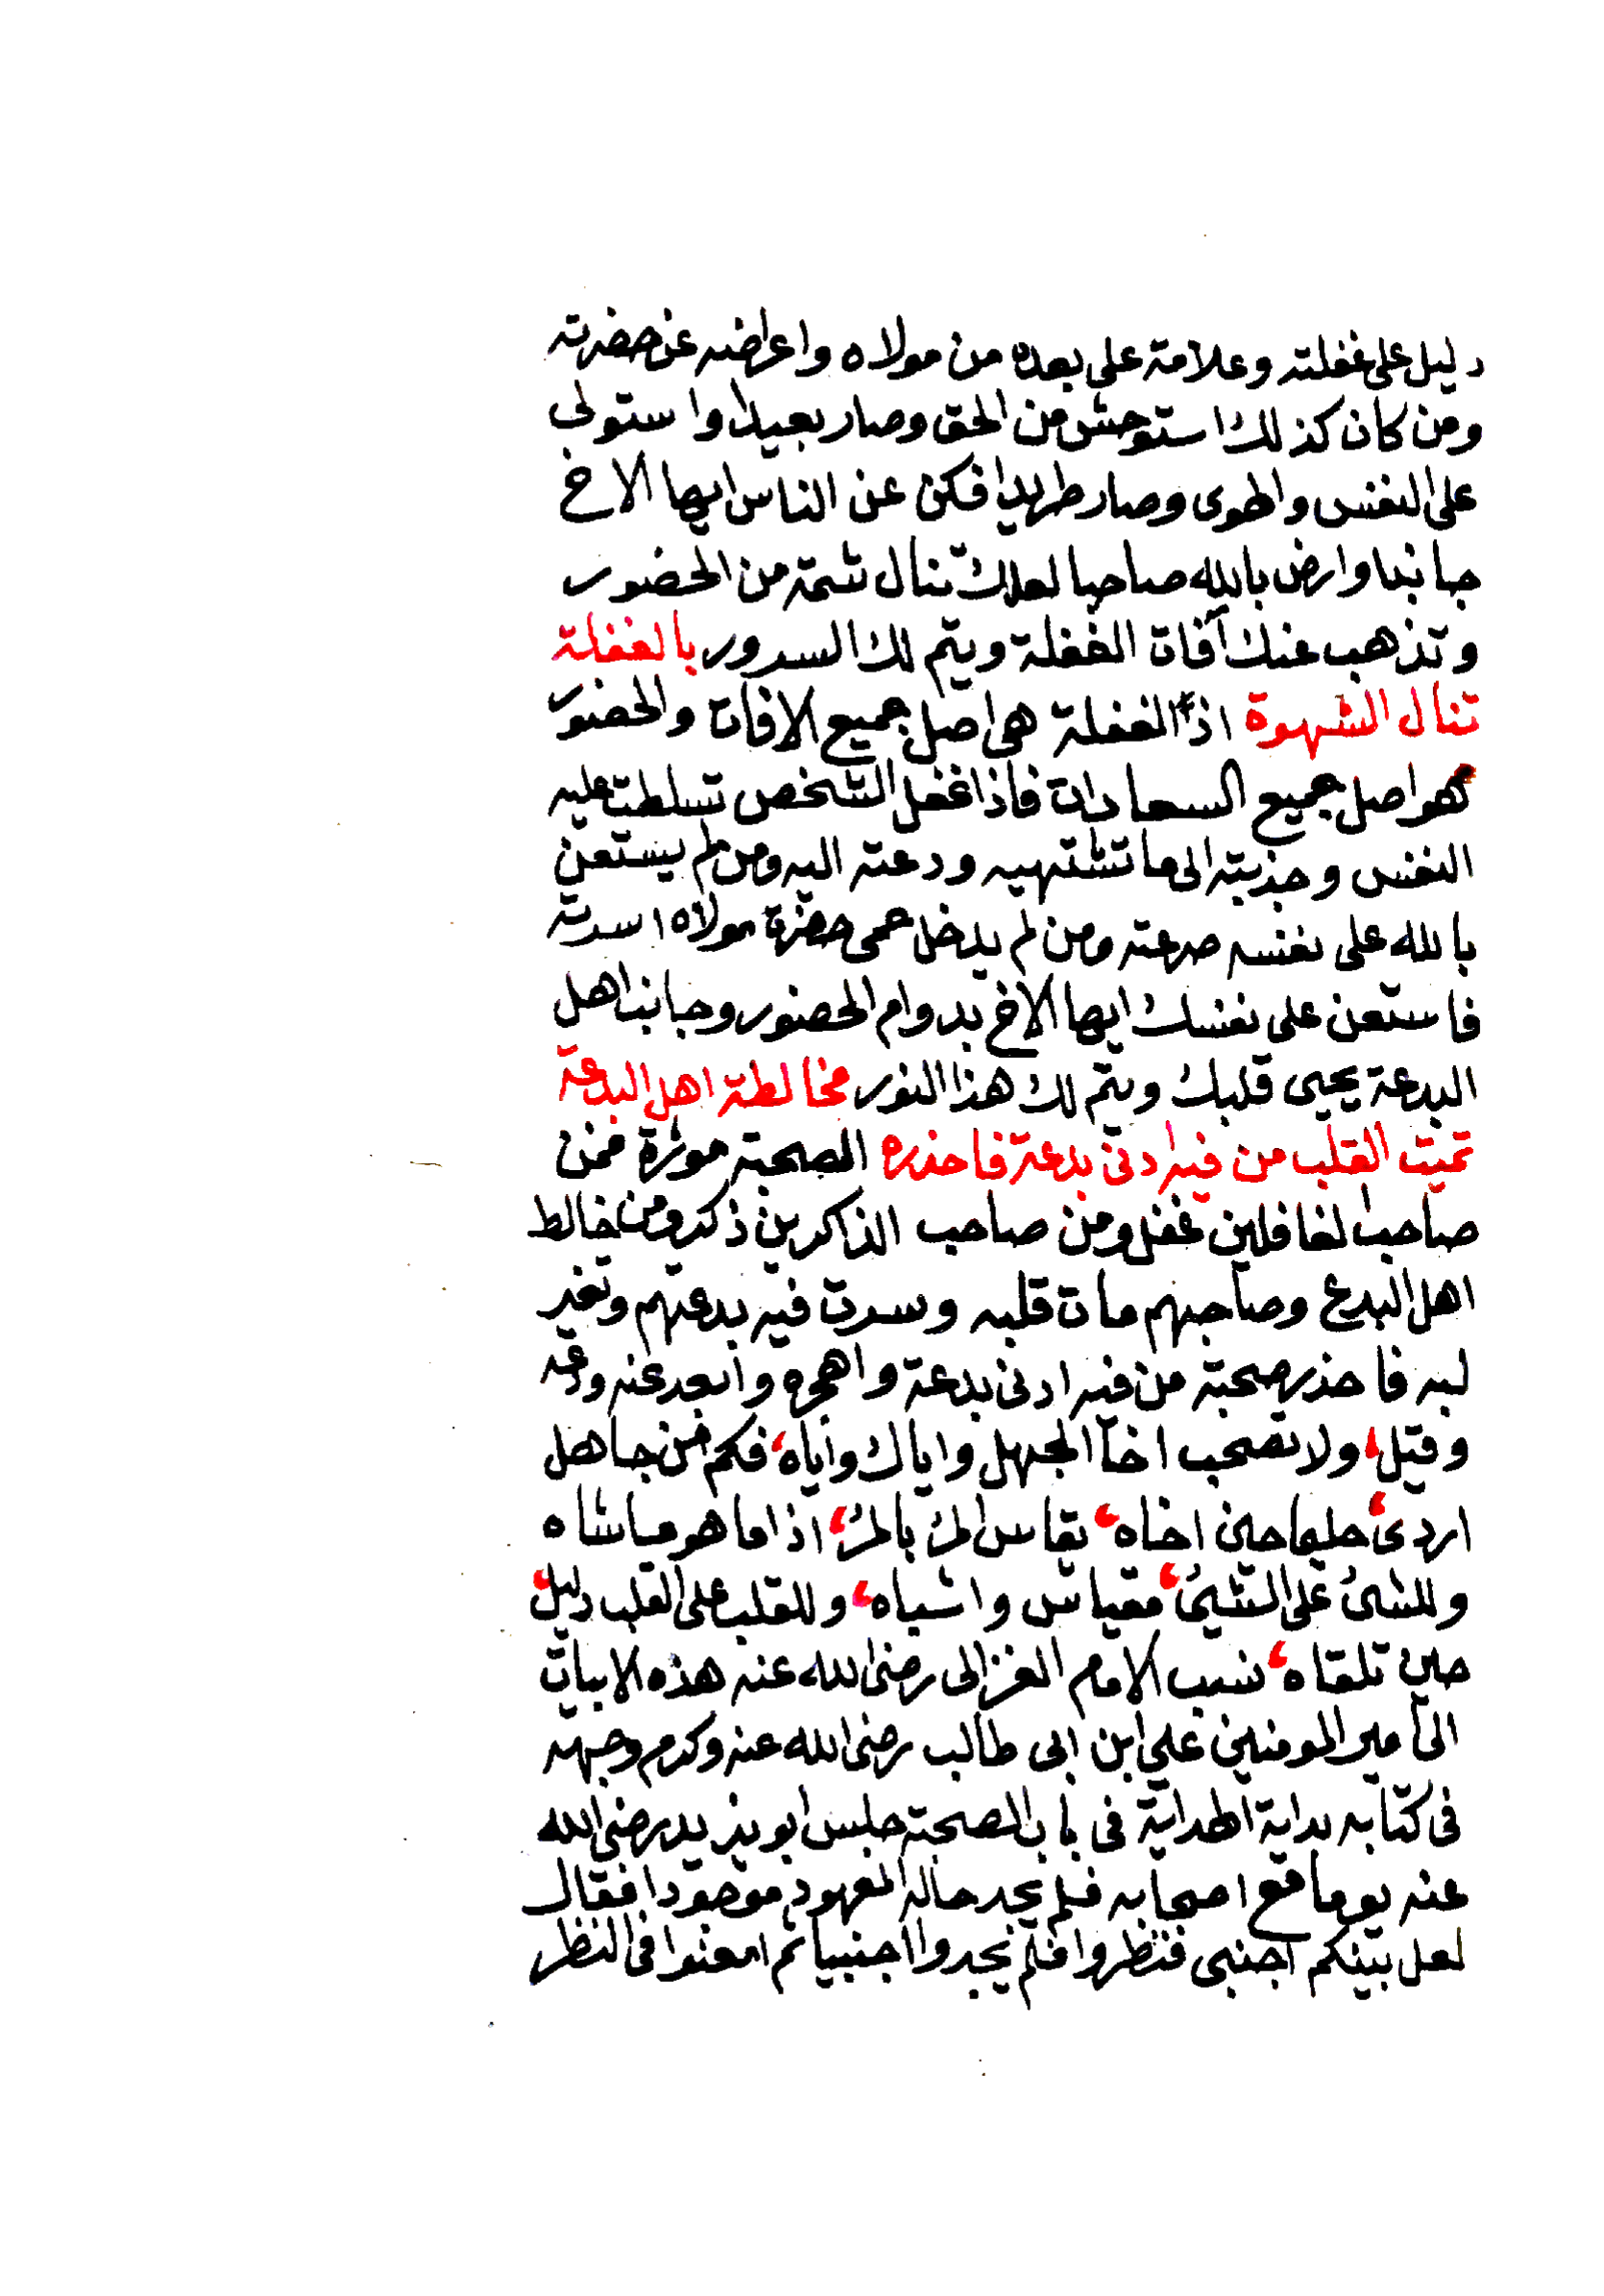 دليل على غفلته وعلامة على بعده من مولاه واعراضه عن حضرته
ومن كان كذلك استوحش من الحق وصار بعيدا واستولى
على النفس والهوى وصار طريدا فكن عن الناس ايها الاخ
جانبا وارض بالله صاحبا لعلك تنال شمة من الحضور
وتذهب عنك آفات الغفلة ويتم لك السرور بالغفلة
تنال الشهوة اذ الغفلة هى اصل جميع الافات والحضور
هو اصل جميع السعادات فاذا غفل الشخص تسلطت عليه
النفس وجذبته الى ما تشتهيه ودعته اليه ومن لم يستعن
بالله على نفسه صرعته ومن لم يدخل حمى حضرة مولاه اسرته
فاستعن على نفسك ايها الاخ بدوام الحضور وجانب اهل
البدعة يحيى قلبك ويتم لك هذا النور مخالطة اهل البدعة
تميت القلب من فيه ادنى بدعة فاحذره الصحبة موثرة فمن
صاحب الغافلين غفل ومن صاحب الذاكرين ذكر ومن خالط
اهل البدع وصاحبهم مات قلبه وسرت فيه بدعتهم وتغير
لبه فاحذر صحبة من فيه ادنى بدعة واهجره وابعد عنه ودعه
وقيل، ولا تصحب اخا الجهل واياك واياه، فكم من جاهل
اردى، حليما حين اخاه، يقاس المرء بالمرء، اذا ما هو ماشاه
وللشىء على الشىء، مقياس واشباه، وللقلب على القلب دليل،
حين تلقاه، نسب الامام الغزالى رضى الله عنه هذه الابيات
الى امير المومنين علي ابن ابى طالب رضى الله عنه وكرم وجهه
فى كتابه بداية الهداية فى باب الصحبة جلس ابو يزيد رضى الله
عنه يوما مع اصحابه فلم يجد حاله المعهود موجودا فقال
لعل بينكم اجنبى فنظروا فلم يجدوا اجنبيا ثم امعنوا فى النظر